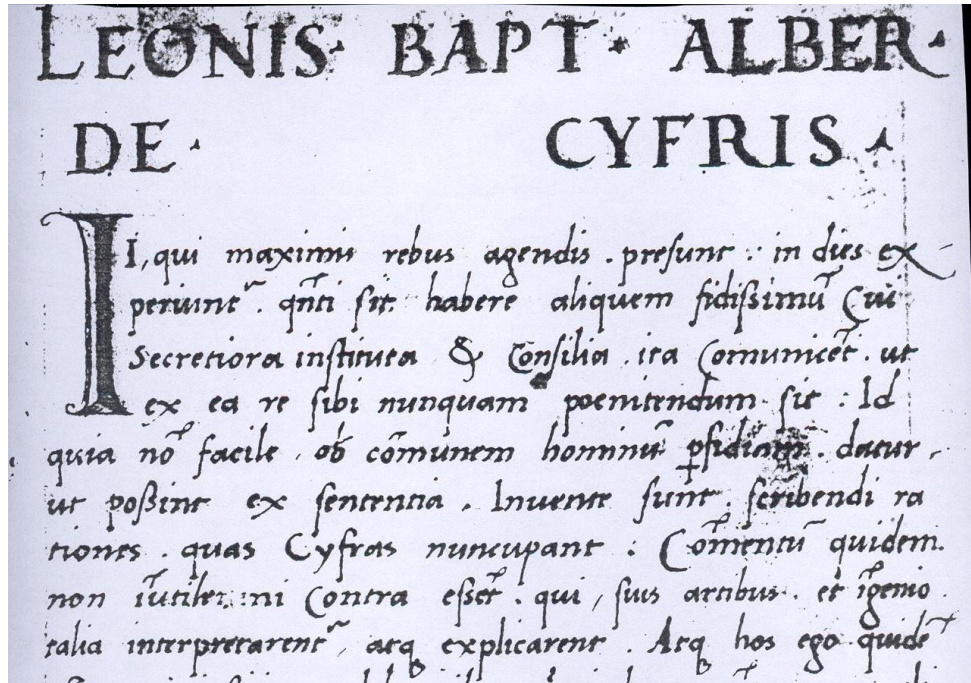 LEONIS · BAPT · ALBER ·
DE · CYFRIS ·
II, qui maximis rebus agendis . presunt : in dies ex-
periunt᷑ . qn̄ti sit habere aliquem fidissimū Cui
Secretiora instituta & Consilia . ita Comunicēt . ut
ex ea re sibi nunquam poenitendum sit : Id
quia nō facile . ob cōmunem hominū ꝑfidiam . datur .
ut poßint ex sententia . Inuente sunt . scribendi ra
tiones . quas Cyfras nuncupant : Cōmentū quidem .
non īutile: ni Contra eßēt . qui , suis artibus . et īgenio .
talia interpretarent᷑ , atq explicarent . Atq hos ego quidē